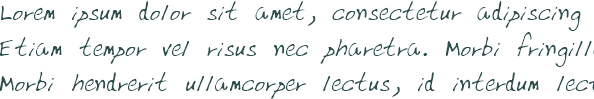 Lorem ipsum dolor sit amet, consectetur adipiscing
Etiam tempor vel risus nec pharetra. Morbi fringill
Morbi hendrerit ullamcorper lectus, id interdum lect